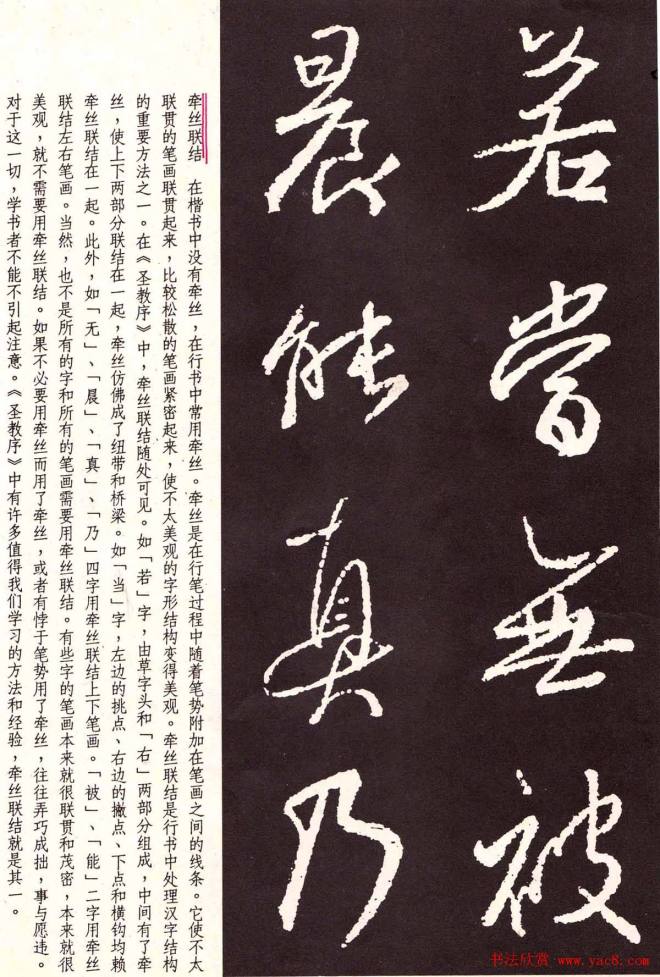 若當無被
晨能真乃
牵丝联结 在楷书中没有牵丝，在行书中常用牵丝。牵丝是在行笔过程中随着笔势附加在笔画之间的线条。它使不太
联贯的笔画联贯起来，比较松散的笔画紧密起来，使不太美观的字形结构变得美观。牵丝联结是行书中处理汉字结构
的重要方法之一。在《圣教序》中，牵丝联结随处可见。如「若」字，由草字头和「右」两部分组成，中间有了牵
丝，使上下两部分联结在一起，牵丝仿佛成了纽带和桥梁。如「当」字，左边的挑点、右边的撇点、下点和横钩均赖
牵丝联结在一起。此外，如「无」、「晨」、「真」、「乃」四字用牵丝联结上下笔画。「被」、「能」二字用牵丝
联结左右笔画。当然，也不是所有的字和所有的笔画需要用牵丝联结。有些字的笔画本来就很联贯和茂密，本来就很
美观，就不需要用牵丝联结。如果不必要用牵丝而用了牵丝，或者有悖于笔势用了牵丝，往往弄巧成拙，事与愿违。
对于这一切，学书者不能不引起注意。《圣教序》中有许多值得我们学习的方法和经验，牵丝联结就是其一。
书法欣赏 www.yac8.com